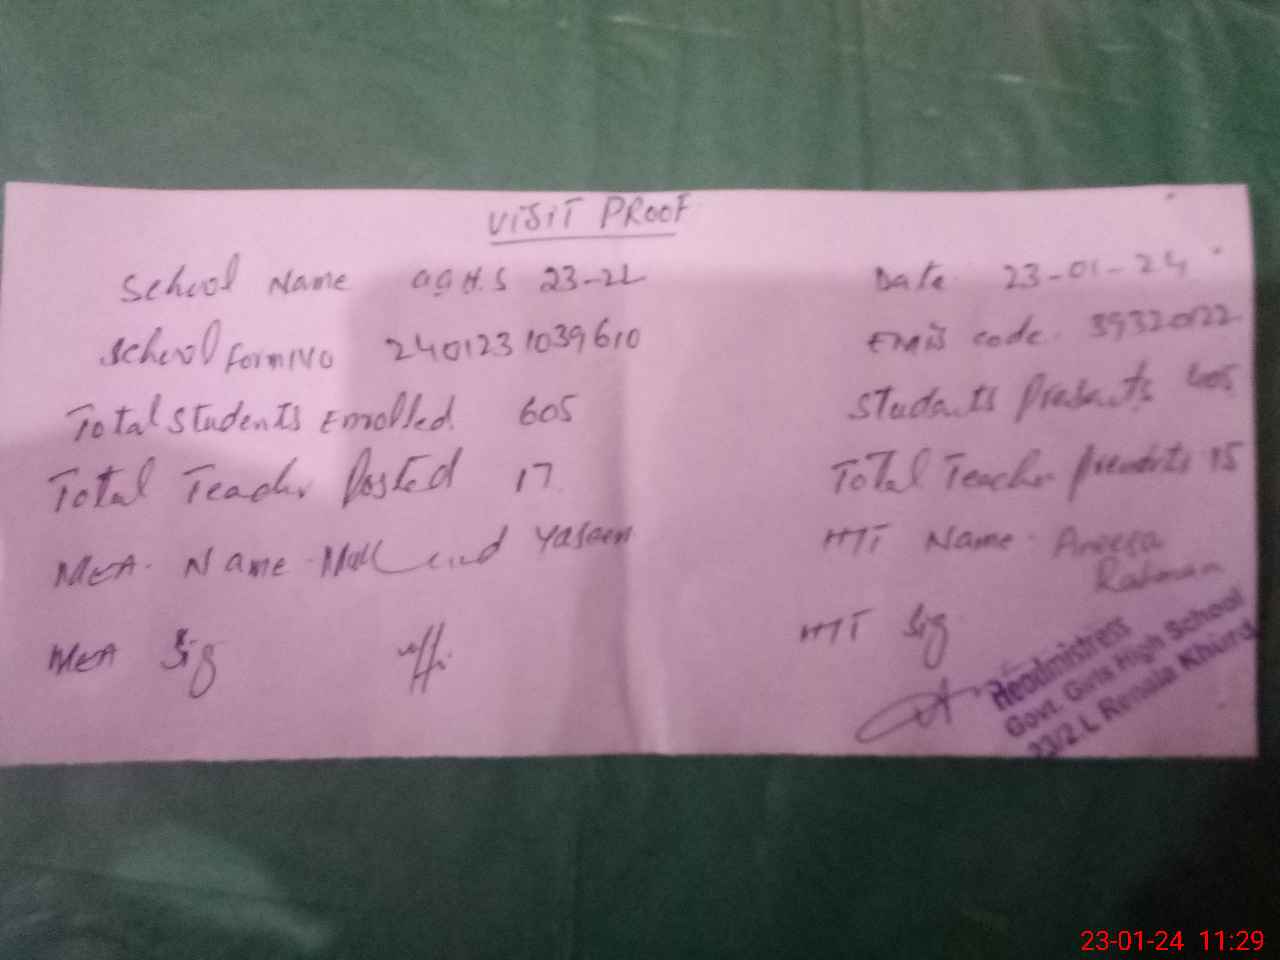 VISIT PROOF
School Name GGH.S 23-2L
Date 23-01-24
School Form No 2401231039610
Emis code. 39320122
Total Students Enrolled 605
Students Presents 405
Total Teacher Posted 17
Total Teacher presents 15
MEA. Name Yaseen
HT Name Aneesa
Rahman
MEA Sig
HT Sig
Headmistress
Govt. Girls High School
23/2 L Renala Khurd
23-01-24 11:29